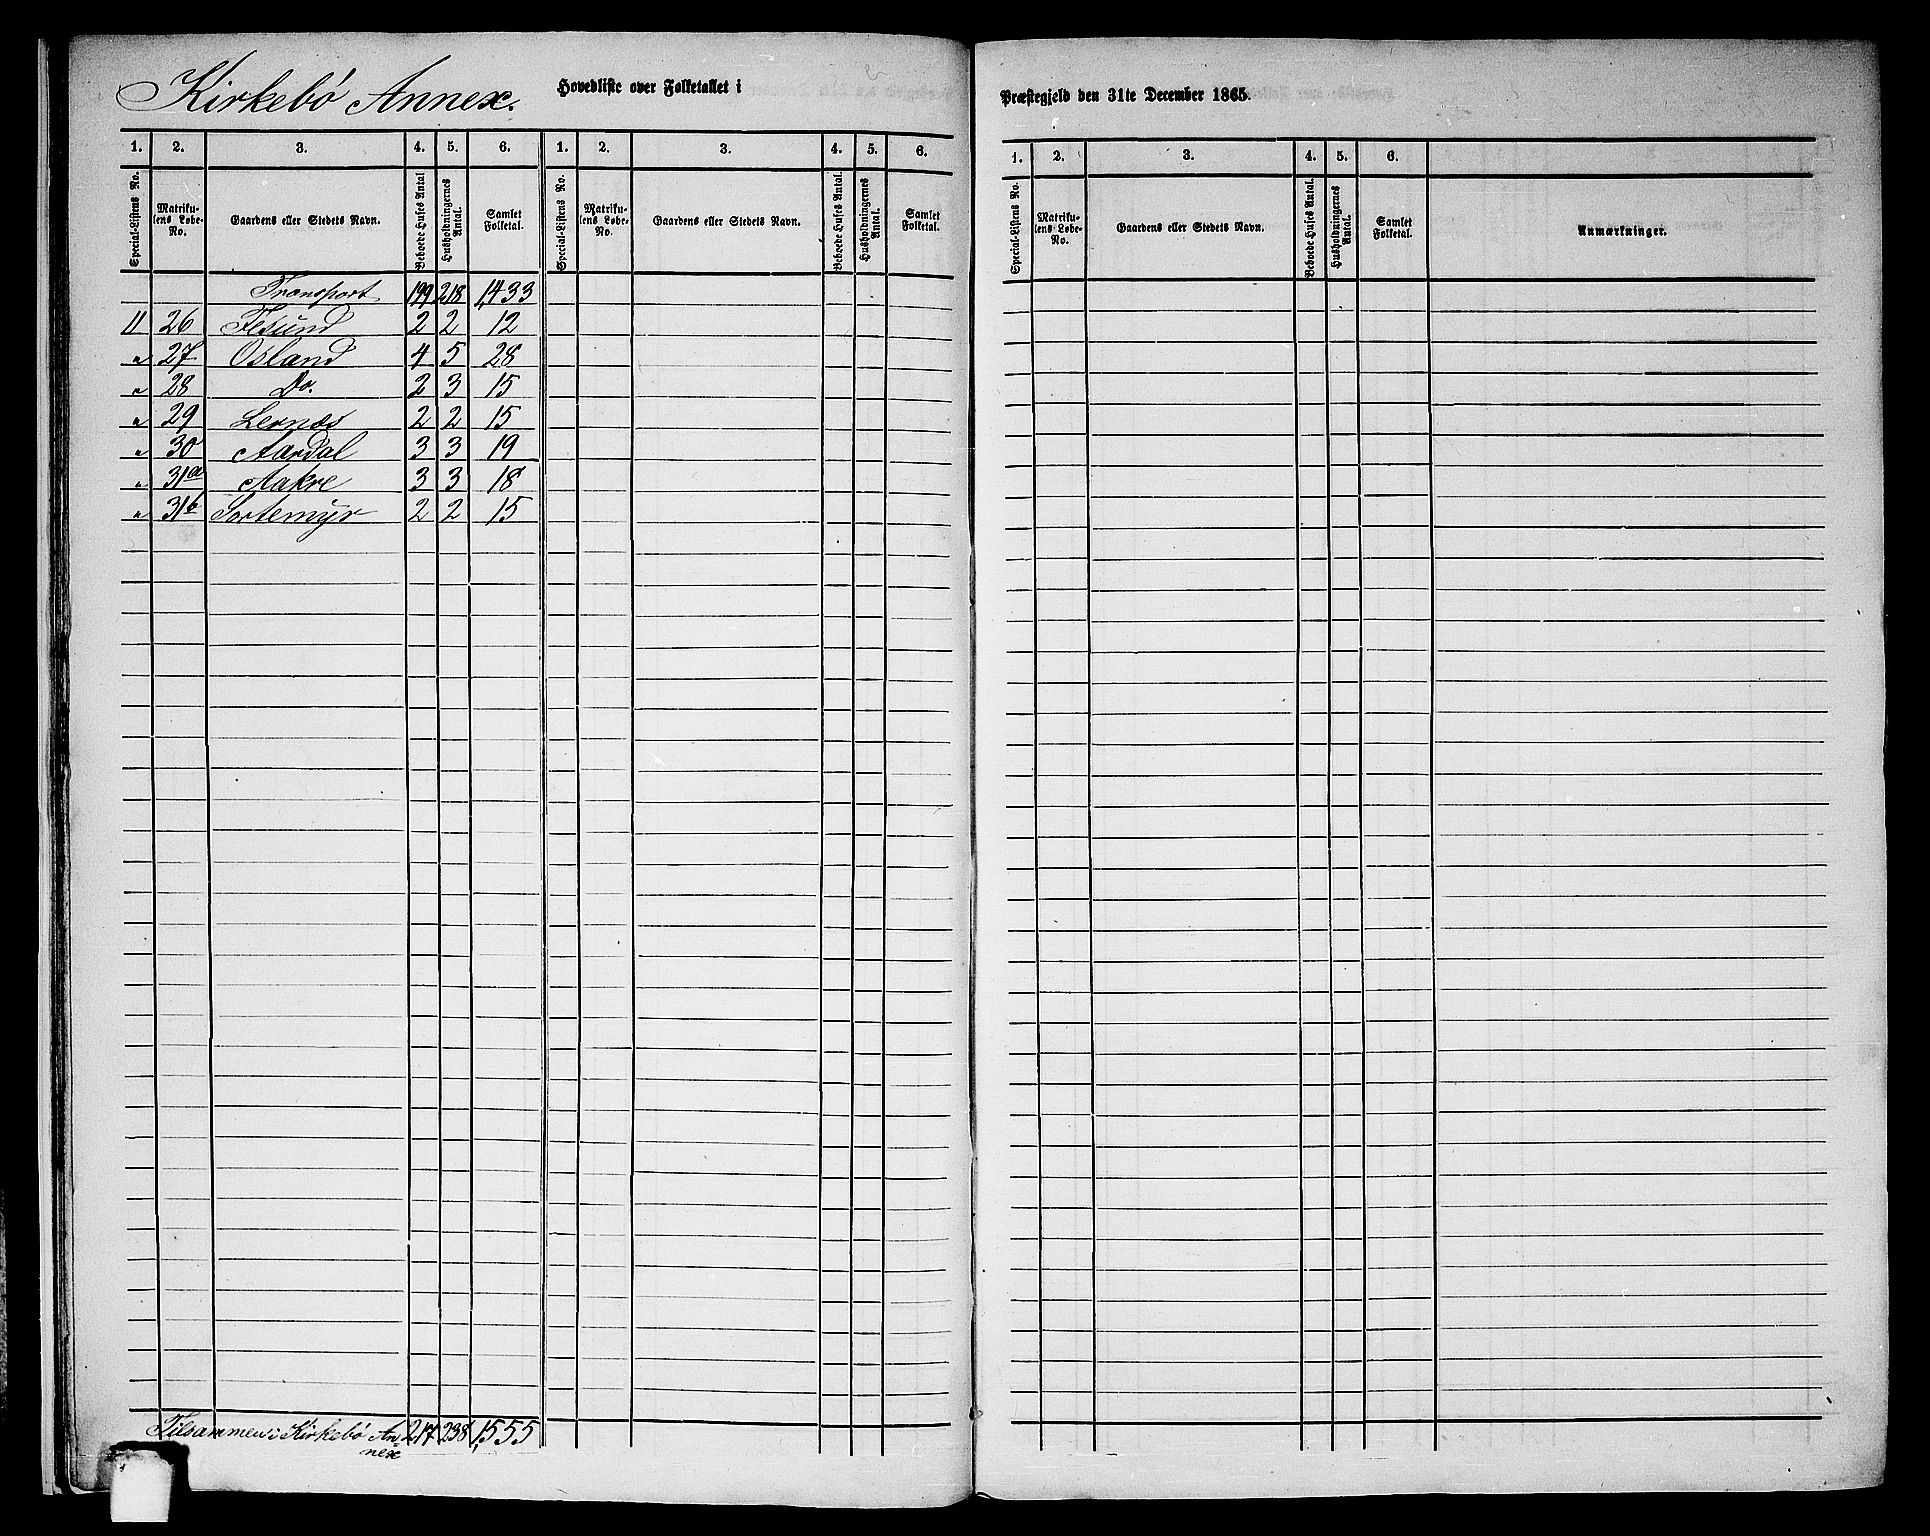 Kirkebö Annex.
Hovedliste over Folketallet i
Præstegjeld den 31te December 1865.
1. 2. 3. 4. 5. 6. 1. 2. 3. 4. 5. 6.
Special-Listens No. Matriku-lens Løbe-No. Gaardens eller Stedets Navn. Beboede Huses Antal Husholdningernes Antal. Samlet Folketal. Special-Listens No. Matriku-lens Løbe-No. Gaardens eller Stedets Navn. Beboede Huses Antal. Husholdningernes Antal. Samlet Folketal.
Transport 199 218 1,433
11 26 2 2 12
" 27 Osland 4 5 28
" 28 Do. 2 3 15
" 29 Lernæs 2 2 15
" 30 Aardal 3 3 19
" 31a Aakre 3 3 18
" 31b Sortemyr 2 2 15
Tilsammen i Kirkebö An 217 238 1,555
nex
1. 2. 3. 4. 5. 6.
Special-Listens No. Matriku-lens Løbe-No. Gaardens eller Stedets Navn. Beboede Huses Antal. Husholdningernes Antal. Samlet Folketal. Anmærkninger.